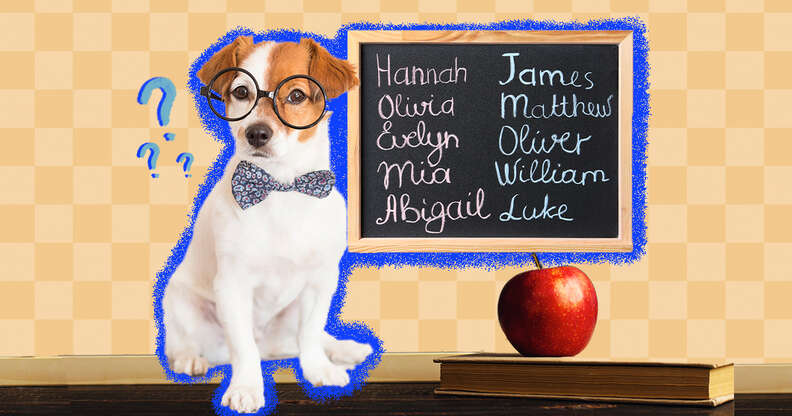 Hannah James
Olivia Matthew
Evelyn Oliver
Mia William
Abigail Luke